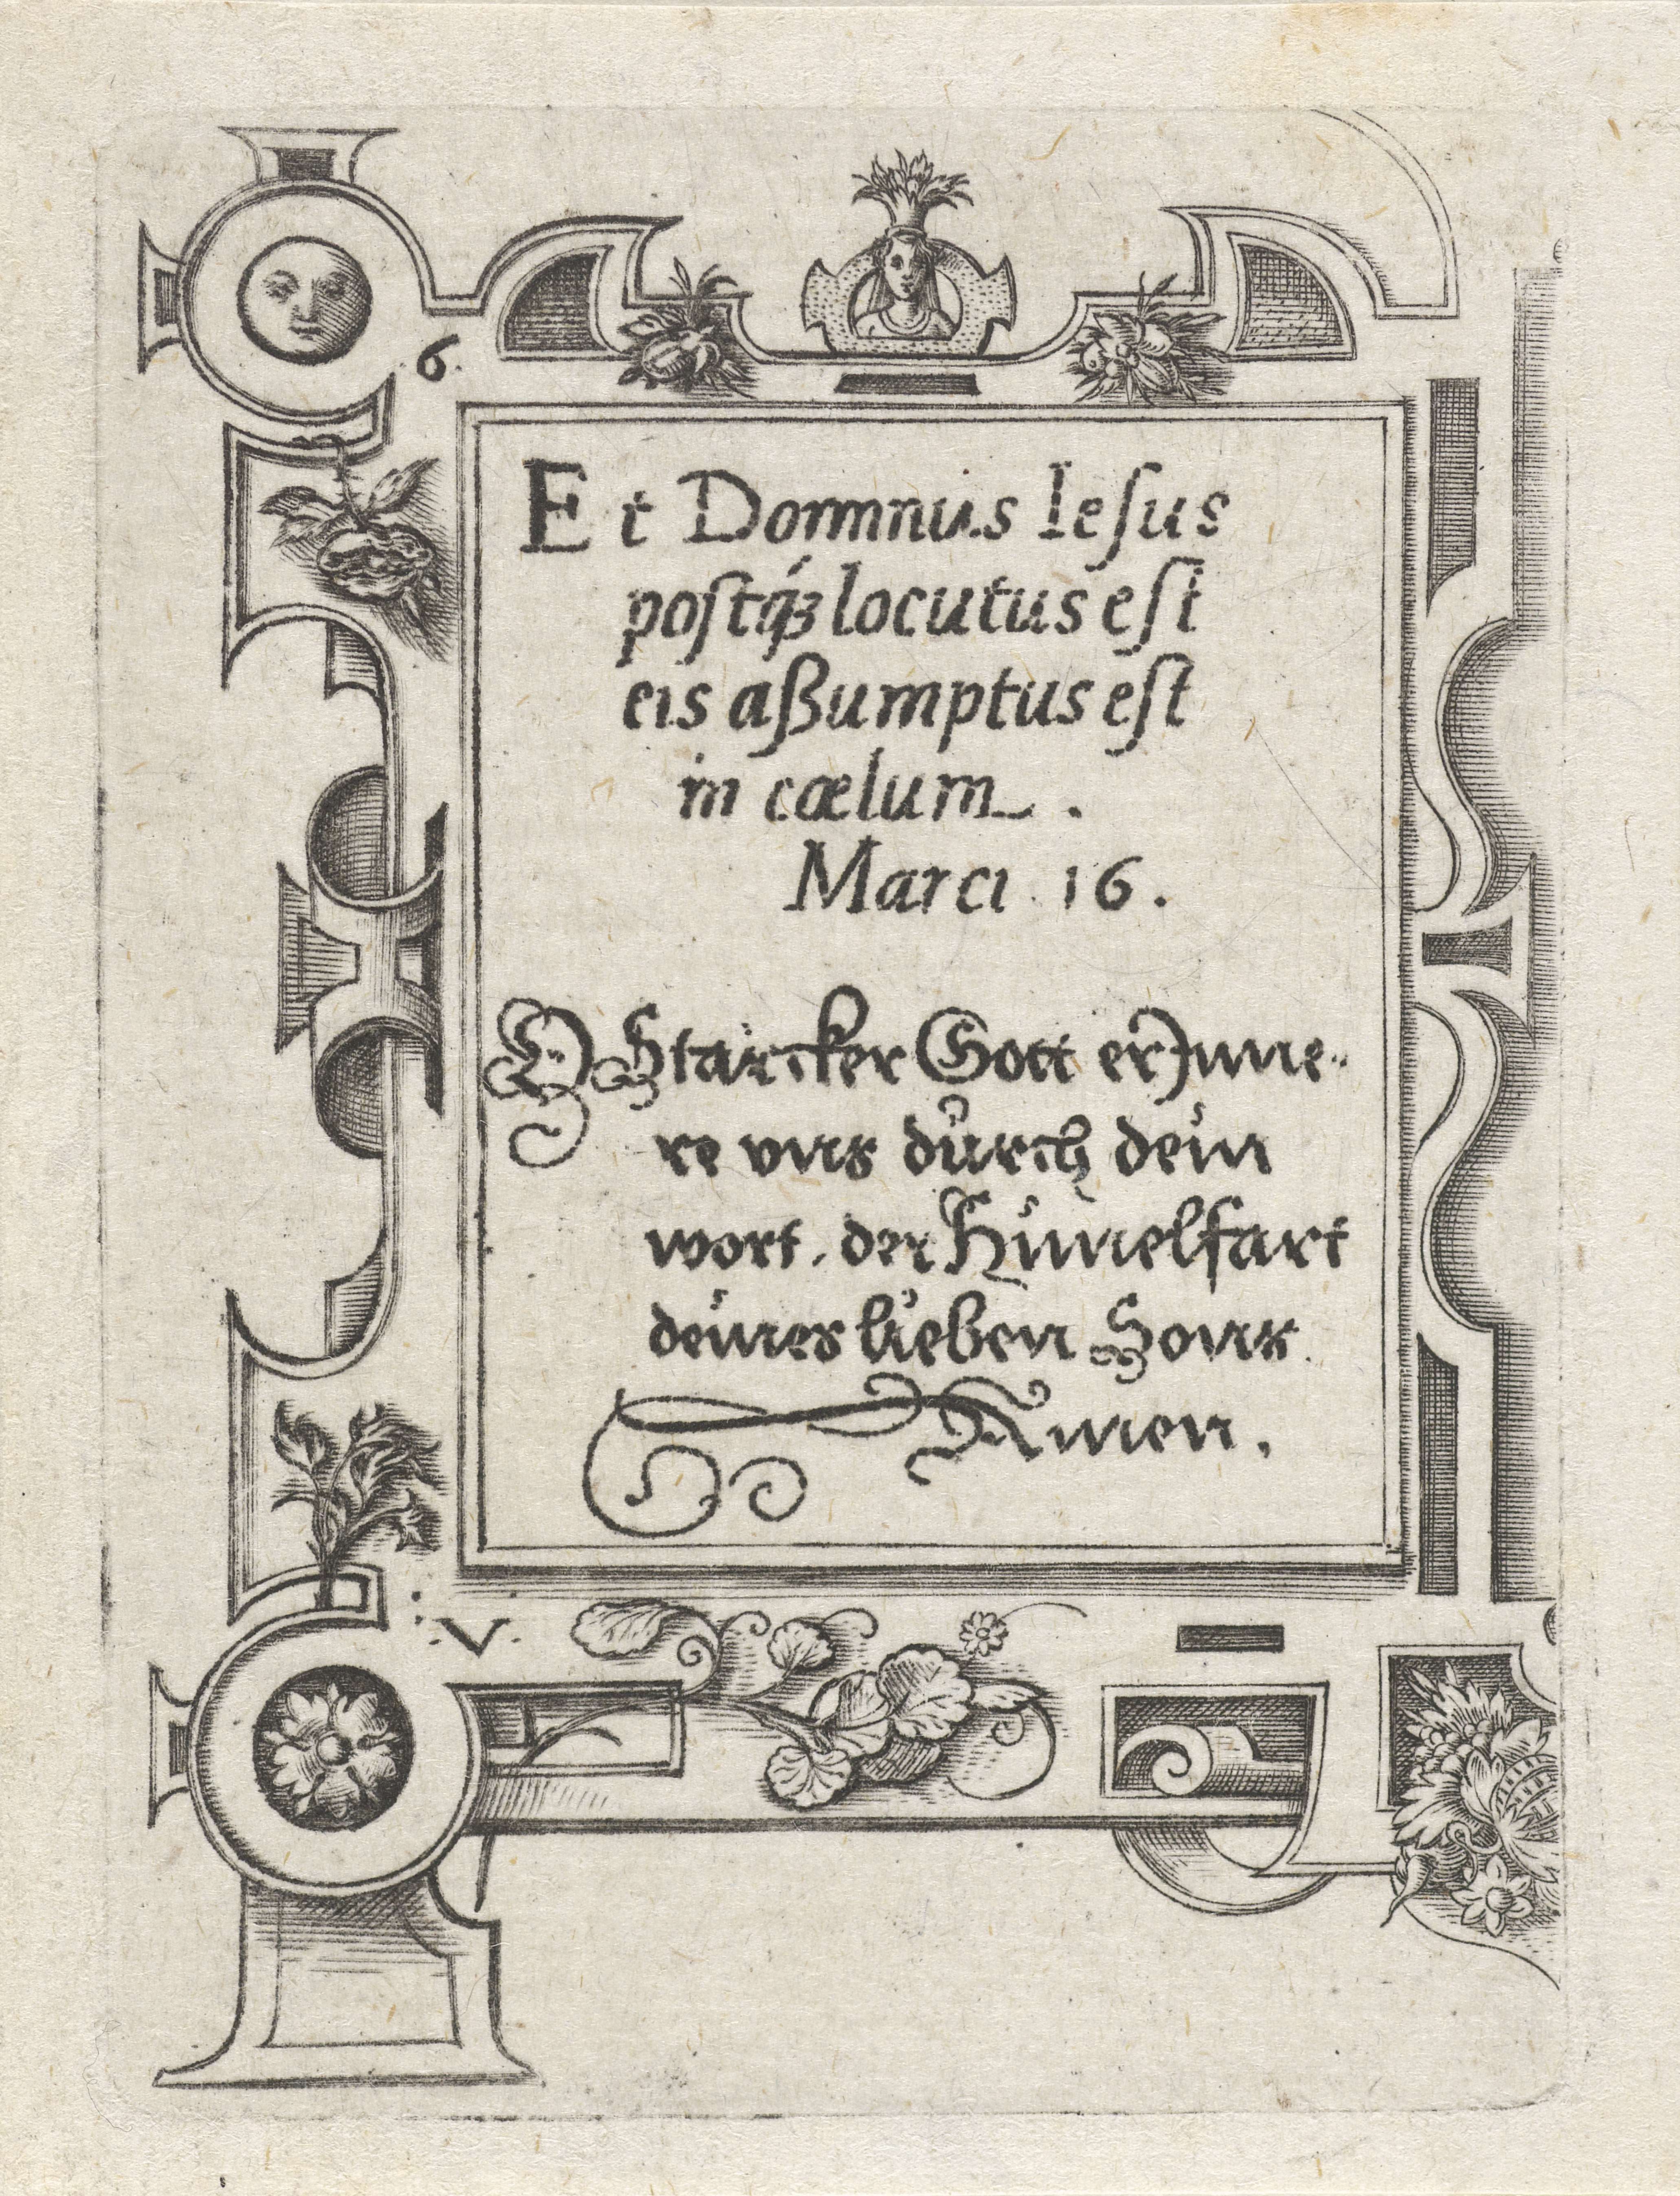 6.
Et Dominus Iesus
postq́ꝫ locutus est
eis aßumptus est
in cœlum.
Marci 16.
O Starcker Gott erJnne-
re vns durch dein
wort, der Himelfart
deines lieben Sons
Amen.
V.